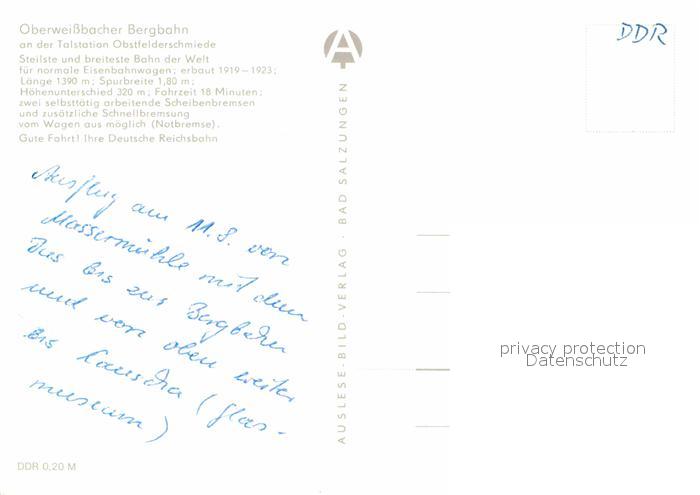 Oberweißbacher Bergbahn
an der Talstation Obstfelderschmiede
Steilste und breiteste Bahn der Welt
für normale Eisenbahnwagen; erbaut 1919–1923;
Länge 1390 m; Spurbreite 1,80 m;
Höhenunterschied 320 m; Fahrzeit 18 Minuten;
zwei selbsttätig arbeitende Scheibenbremsen
und zusätzliche Schnellbremsung
vom Wagen aus möglich (Notbremse).
Gute Fahrt! Ihre Deutsche Reichsbahn
Ausflug am 11.8. von
Massermühle mit dem
Bus bis zur Bergbahn
und von oben weiter
bis Lauscha (Glas-
museum)
DDR 0,20 M
A
AUSLESE-BILD-VERLAG · BAD SALZUNGEN
DDR
privacy protection
Datenschutz